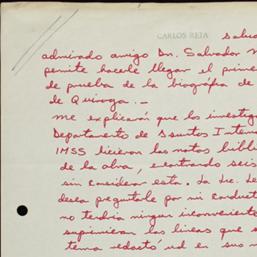 CARLOS RETA
salud
admirado amigo Dr. Salvador
permite hacerle llegar el prime
de prueba de la biografía de
de Quiroga.-
Me explicaré que los investig
Departamento de Asuntos Intern
IMSS hicieran las notas bibli
de la obra, encontrando seis
sin considerar esta. La Lic. Le
desea preguntarle por mi conduct
no tendría ningun inconveniente
suprimieran las lineas que s
tema redactó ud en sus n